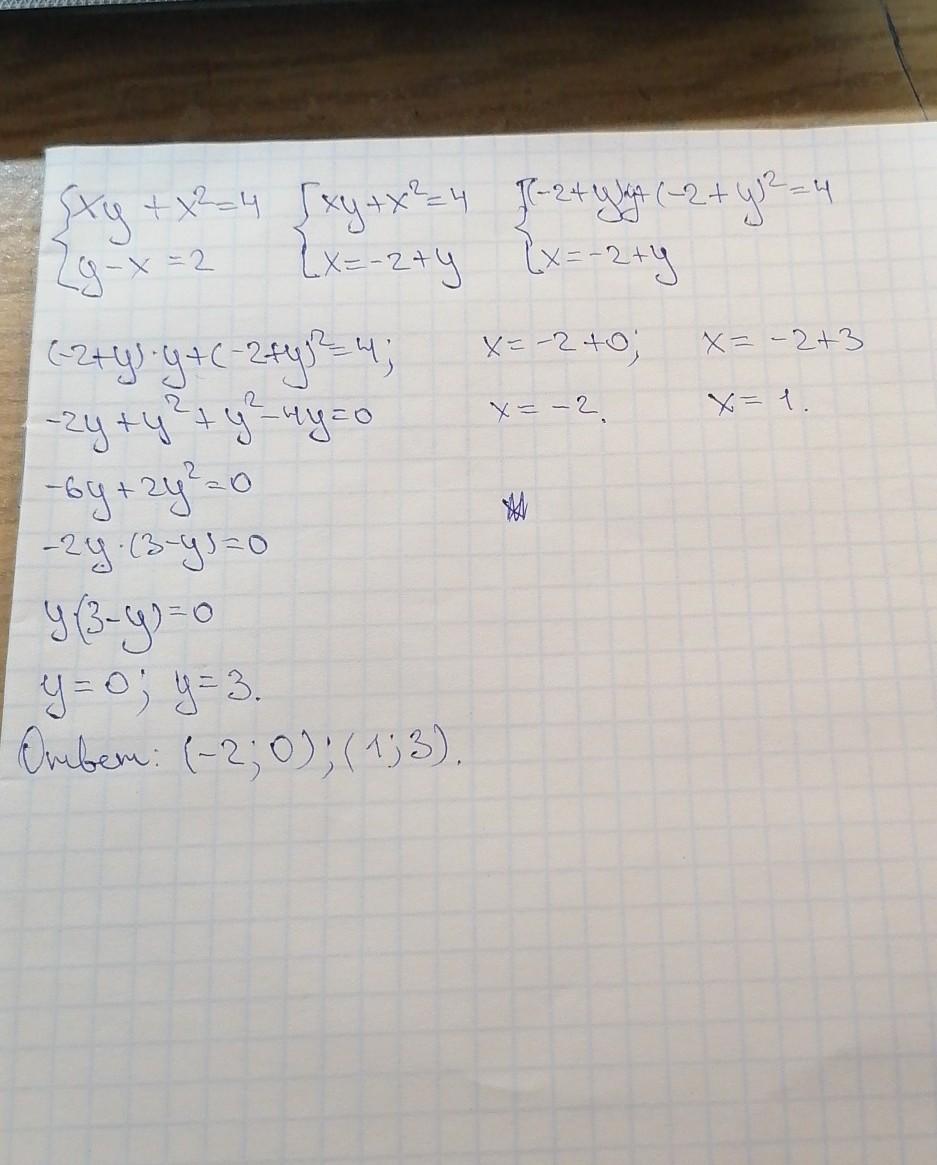 {xy + x²=4 {xy+x²=4 {(-2+y)y+(-2+y)²=4
{y-x=2 {x=-2+y {x=-2+y
(-2+y)·y+(-2+y)²=4; x=-2+0; x=-2+3
-2y+y²+y²-4y=0 x=-2. x=1.
-6y+2y²=0
-2y·(3-y)=0
y(3-y)=0
y=0; y=3.
Ответ: (-2;0);(1;3).